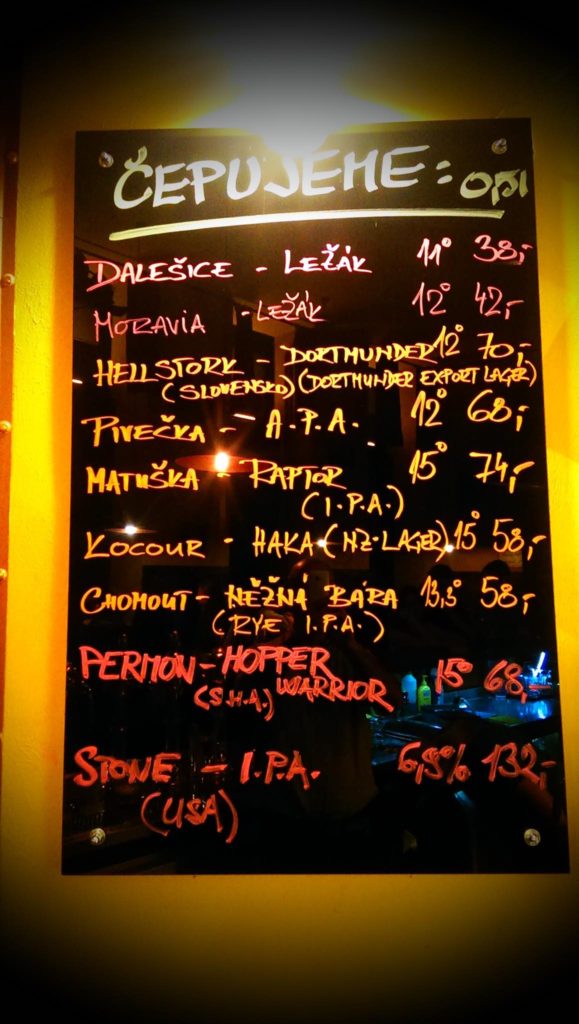 ČEPUJEME: 0,5l
DALEŠICE - LEŽÁK 11° 38,-
MORAVIA - LEŽÁK 12° 42,-
HELLSTORK - DORTMUNDER 12° 70,-
(SLOVENSKO) (DORTMUNDER EXPORT LAGER)
PIVEČKA - A.P.A. 12° 68,-
MATUŠKA - RAPTOR 15° 74,-
(I.P.A.)
KOCOUR - HAKA (NZ-LAGER) 15° 58,-
CHOMOUT - NĚŽNÁ BÁRA 13,5° 58,-
(RYE I.P.A.)
PERMON - HOPPER 15° 68,-
(S.H.A.) WARRIOR
STONE - I.P.A. 6,9% 132,-
(USA)